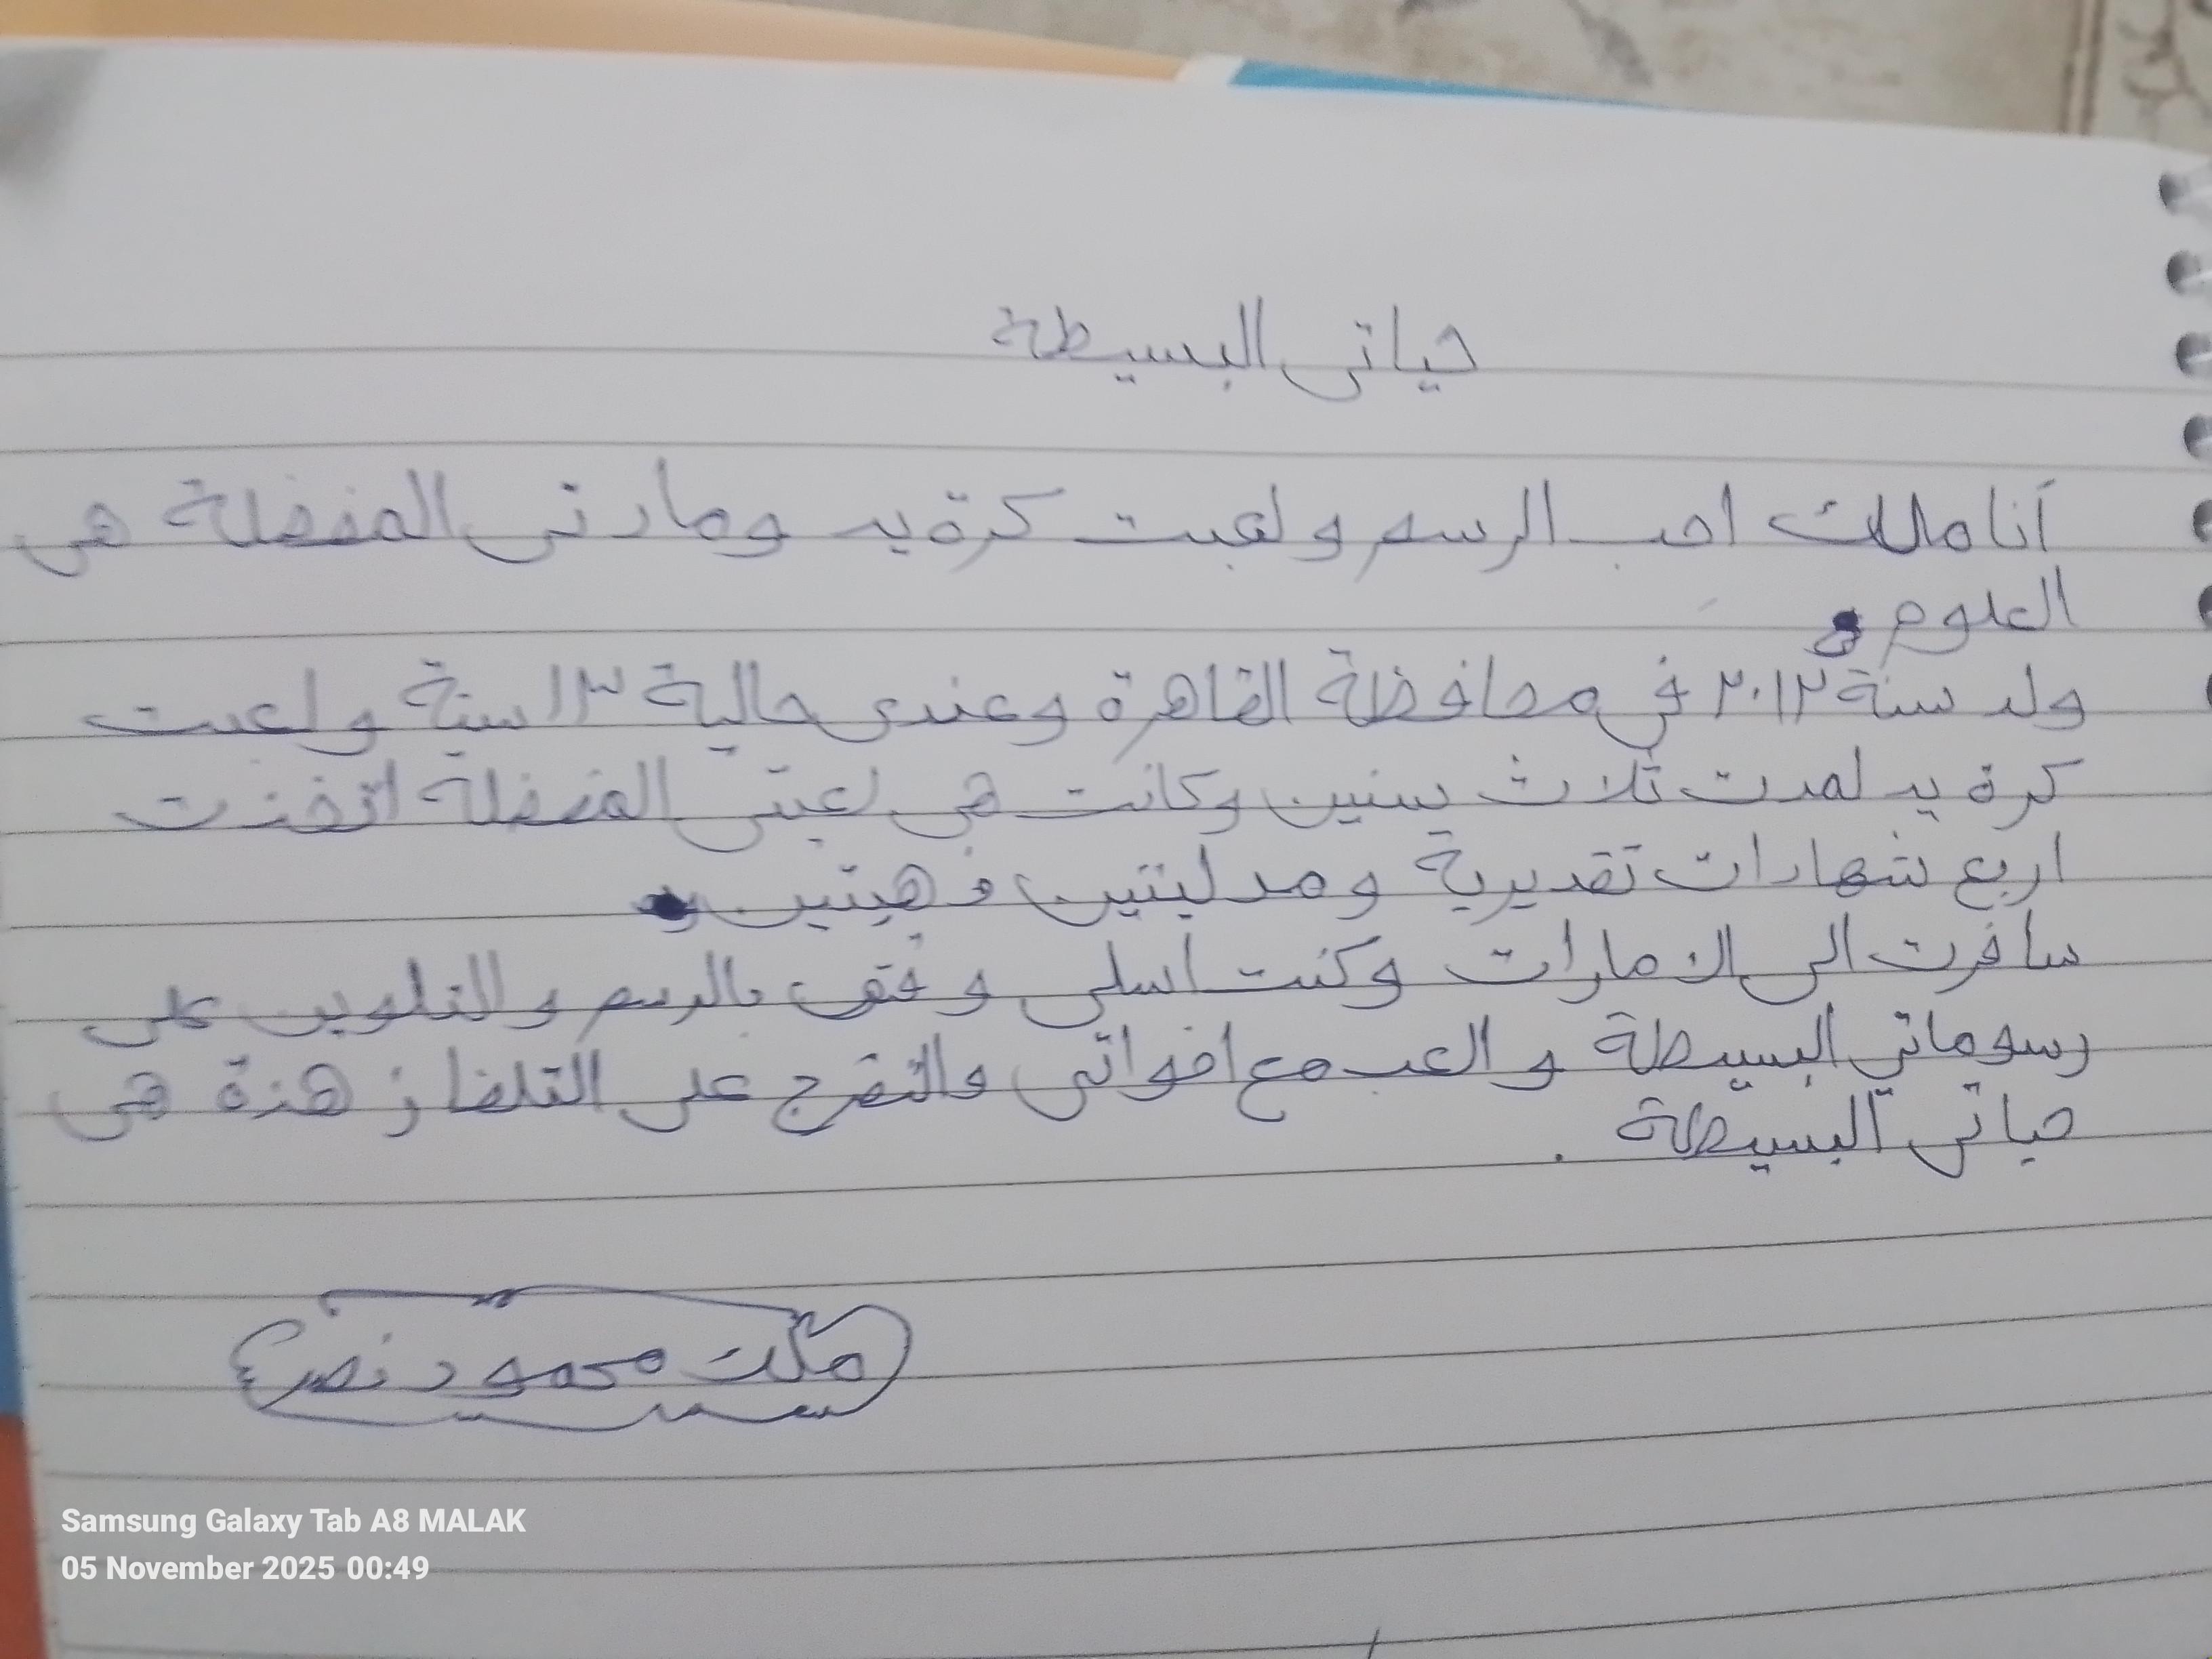 حياتى البسيطة
أنا ملك احب الرسم و لعبت كرة يد ومادتى المفضلة هى
العلوم و
ولد سنة ٢٠١٢ في محافظة القاهرة وعندى حالية ١٣ سنة و لعبت
كرة يد لمدت ثلاث سنين وكانت هى لعبتى المفضلة اتخذت
اربع شهادات تقديرية ومدليتين ذهبيتين
سافرت الى الامارات وكنت اسلى وقتى بالرسم والتلوين على
رسوماتى البسيطة و العب مع اخواتى والتفرج على التلفاز هذة هى
حياتى البسيطة .
ملك محمود نصر
Samsung Galaxy Tab A8 MALAK
05 November 2025 00:49